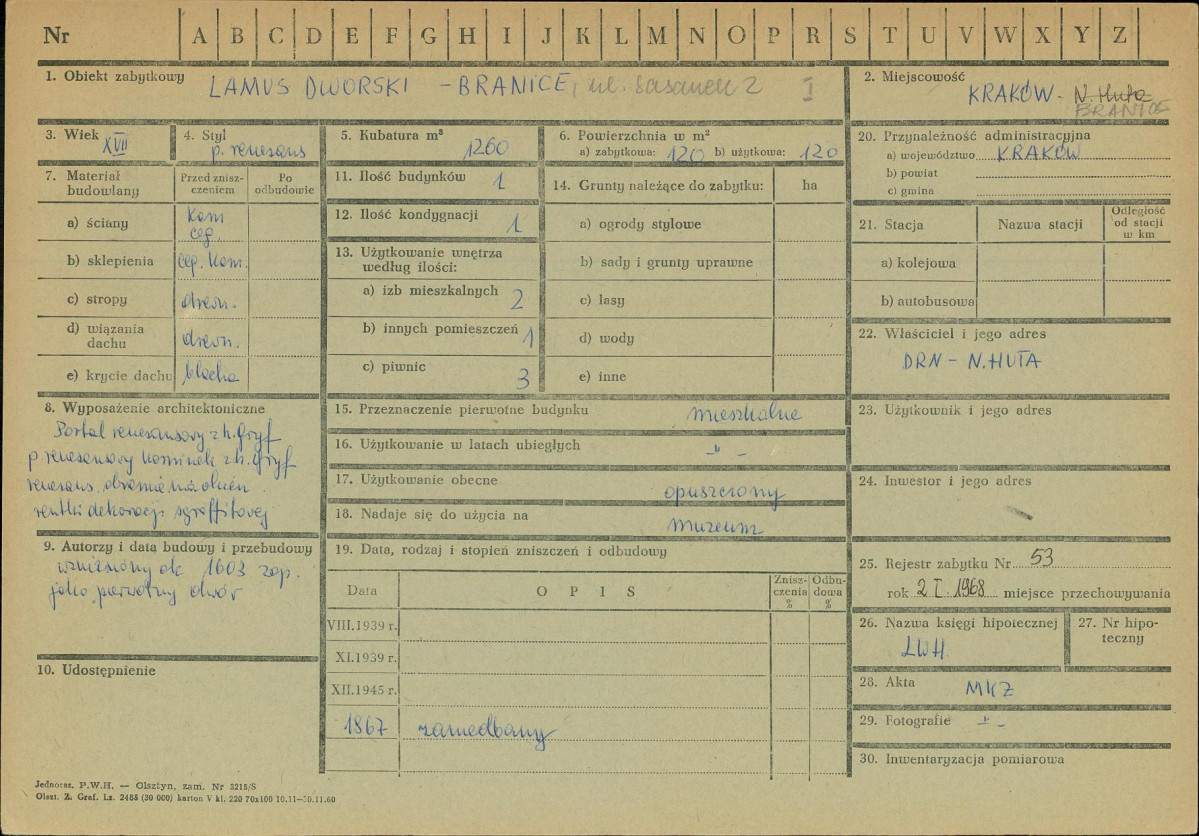 Nr A B C D E F G H I J K L M N O P R S T U V W X Y Z
1. Obiekt zabytkowy LAMUS DWORSKI – BRANICE, ul. Sasanek 2 I
2. Miejscowość
KRAKÓW - N. Huta
BRANICE
3. Wiek XVII
4. Styl
p. renesans
5. Kubatura m³
1260
6. Powierzchnia w m²
a) zabytkowa: 120 b) użytkowa: 120
7. Materiał budowlany
Przed zniszczeniem
Po odbudowie
a) ściany
Kam
ceg.
b) sklepienia ceg. kam.
c) stropy drewn.
d) wiązania dachu drewn.
e) krycie dachu blacha
8. Wyposażenie architektoniczne
Portal renesansowy z h. Gryf
p renesansowy kominek z h. Gryf
renesans. obramie.
dekoracji sgraffitowej
9. Autorzy i data budowy i przebudowy
wzniesiony ok 1603 zap.
jako pierwotny dwór
10. Udostępnienie
11. Ilość budynków 1
12. Ilość kondygnacji
1
13. Użytkowanie wnętrza
według ilości:
a) izb mieszkalnych 2
b) innych pomieszczeń 1
c) piwnic 3
14. Grunty należące do zabytku: ha
a) ogrody stylowe
b) sady i grunty uprawne
c) lasy
d) wody
e) inne
15. Przeznaczenie pierwotne budynku mieszkalne
16. Użytkowanie w latach ubiegłych -"-
17. Użytkowanie obecne opuszczony
18. Nadaje się do użycia na muzeum
19. Data, rodzaj i stopień zniszczeń i odbudowy
Data OPIS Zniszczenia % Odbudowa %
VIII.1939 r.
XI.1939 r.
XII.1945 r.
1867 zaniedbany
20. Przynależność administracyjna
a) województwo KRAKÓW
b) powiat
c) gmina
21. Stacja Nazwa stacji Odległość od stacji w km
a) kolejowa
b) autobusowa
22. Właściciel i jego adres
DRN – N. HUTA
23. Użytkownik i jego adres
24. Inwestor i jego adres
25. Rejestr zabytku Nr 53
rok 2 I. 1968 miejsce przechowywania
26. Nazwa księgi hipotecznej
LWH
27. Nr hipoteczny
28. Akta MKZ
29. Fotografie -"-
30. Inwentaryzacja pomiarowa
Jednoraz. P.W.H. — Olsztyn, zam. Nr 3218/S
Olszt. Z. Graf. Lz. 2488 (30 000) karton V kl. 220 70x100 10.11—30.11.60